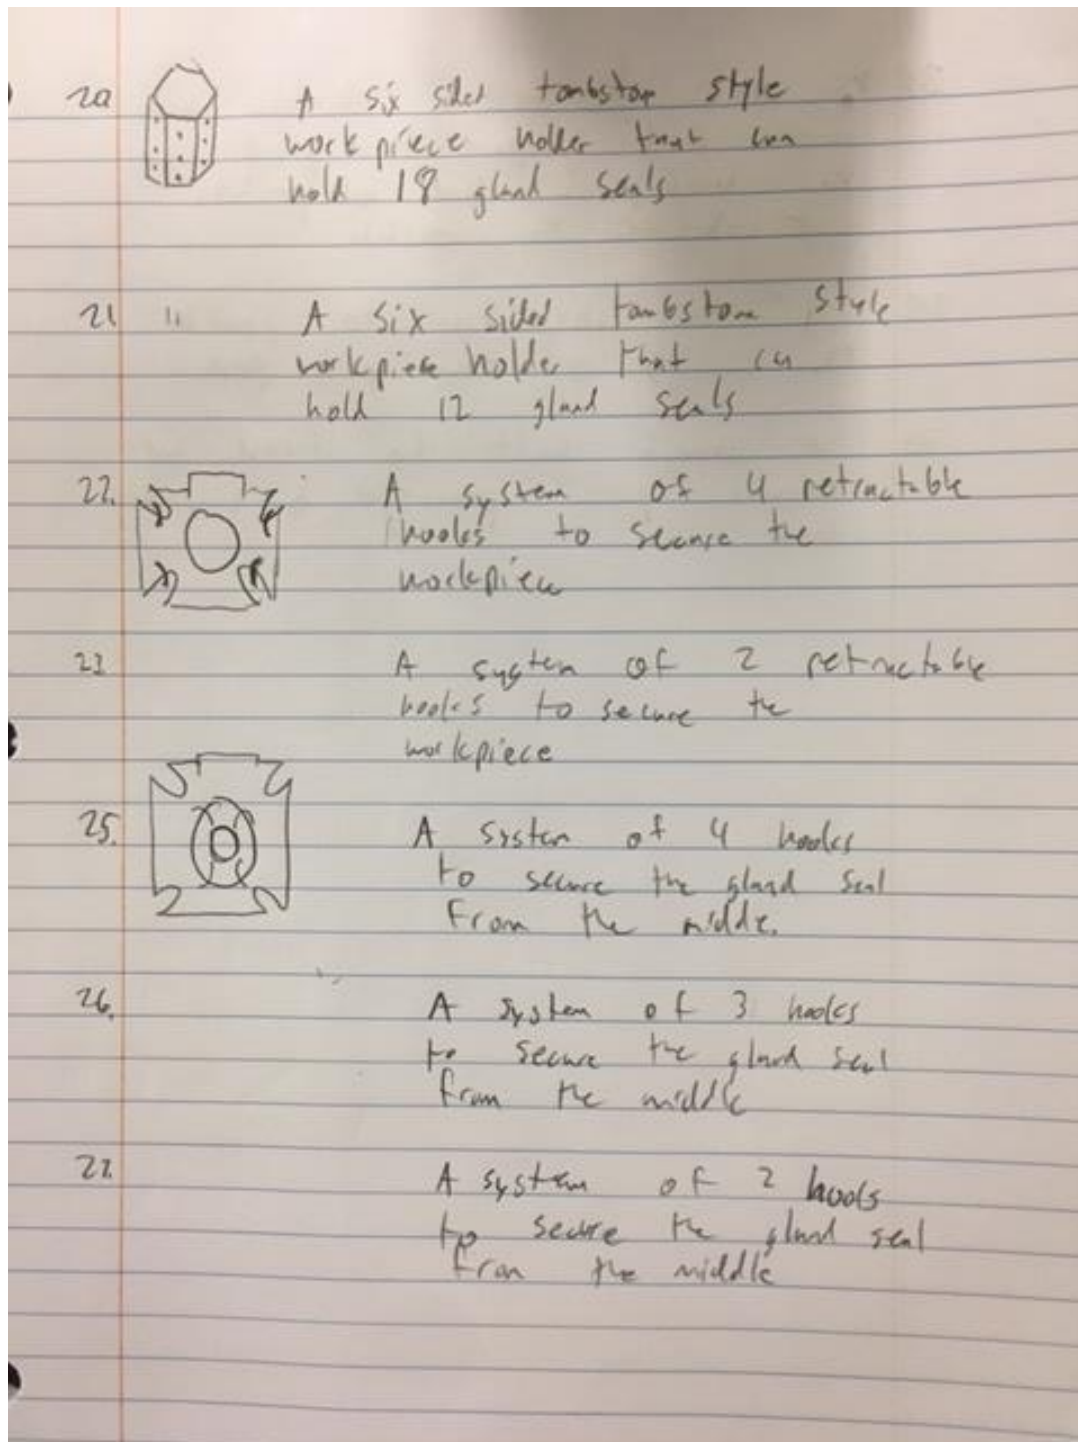 20 A six sided tombstone style
workpiece holder that can
hold 18 gland seals
21 " A six sided tombstone style
workpiece holder that can
hold 12 gland seals
22. A system of 4 retractable
hooks to secure the
workpiece
23 A system of 2 retractable
hooks to secure the
workpiece
25. A system of 4 hooks
to secure the gland seal
from the middle.
26. A system of 3 hooks
to secure the gland seal
from the middle
27. A system of 2 hooks
to secure the gland seal
from the middle